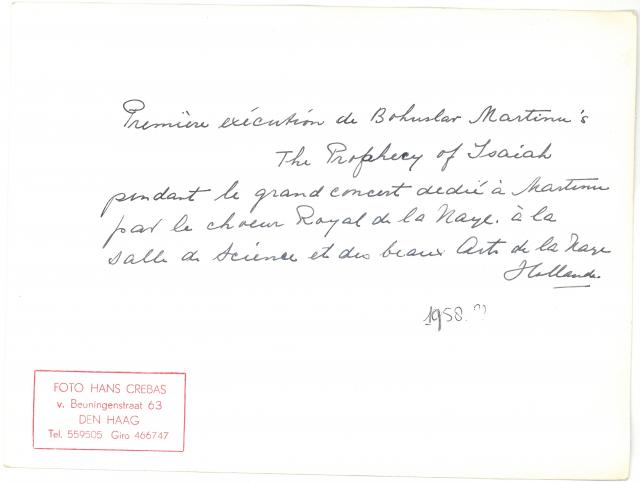 Première exécution de Bohuslav Martinu's
The Prophecy of Isaiah
pendant le grand concert dedié à Martinu
par le choeur Royal de la Haye. à la
salle de Science et des beaux Arts de la Haye
Hollande
1958. (?)
FOTO HANS CREBAS
v. Beuningenstraat 63
DEN HAAG
Tel. 559505 Giro 466747